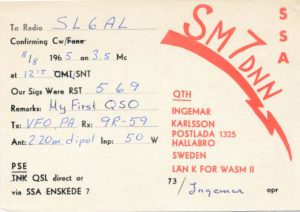 To Radio SL6AL
Confirming Cw/Fone
8/8 1965 on 3.5 Mc
at 1215 GMT/SNT
Our Sigs Were RST 569
Remarks: My First QSO
Tx: VFO, PA Rx: 9R-59
Ant: 2.20m dipol Inp: 50 W
PSE
TNK QSL direct or
via SSA ENSKEDE 7
SM7DNN
SSA
QTH
INGEMAR
KARLSSON
POSTLADA 1325
HALLABRO
SWEDEN
LÄN K FOR WASM II
73/ Ingemar opr